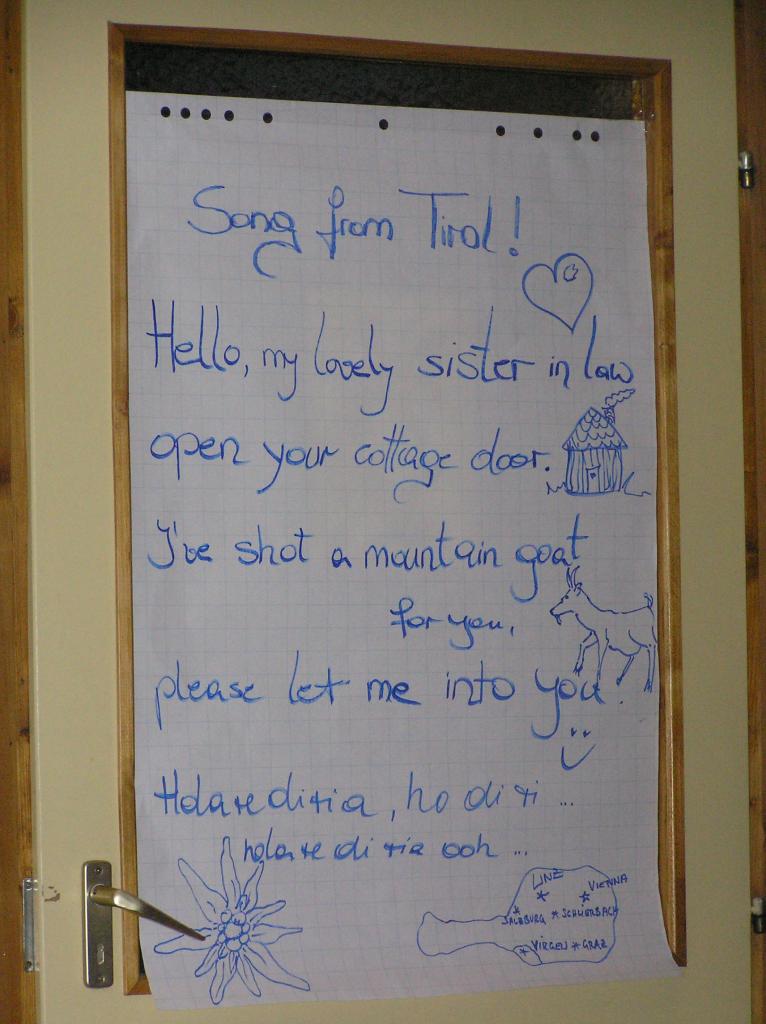 Song from Tirol!
Hello, my lovely sister in law
open your cottage door.
I've shot a mountain goat
for you,
please let me into you.
Holarediria, ho di ri ...
holare di ria ooh ...
LINZ
VIENNA
SALZBURG SCHLIERBACH
VIRGEN GRAZ